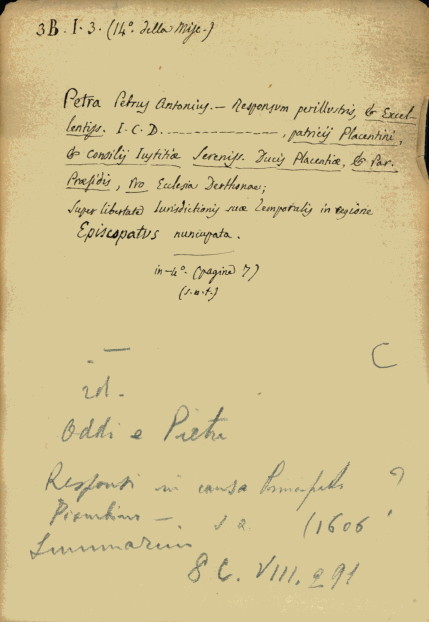 3B. I. 3. (14º. della Misc.)
Petra Petrus Antonius. — Responsum perillustris, & Excel-
lentiss. I. C. D. ——————, patricij Placentini,
& Consilij Iustitiæ Sereniss. Ducis Placentiæ, & Par.
Præsidis, Pro Eclesia Derthonae;
super libertate Iurisdictionis suæ temporalis in regione
Episcopatus nuncupata.
in-4º. (pagine 7)
(s.n.t.)
C
id.
Oddi e Pietra
Responsi in causa Principatus
Piombino — s a. (1606
Summarium
8 C. VIII. 291